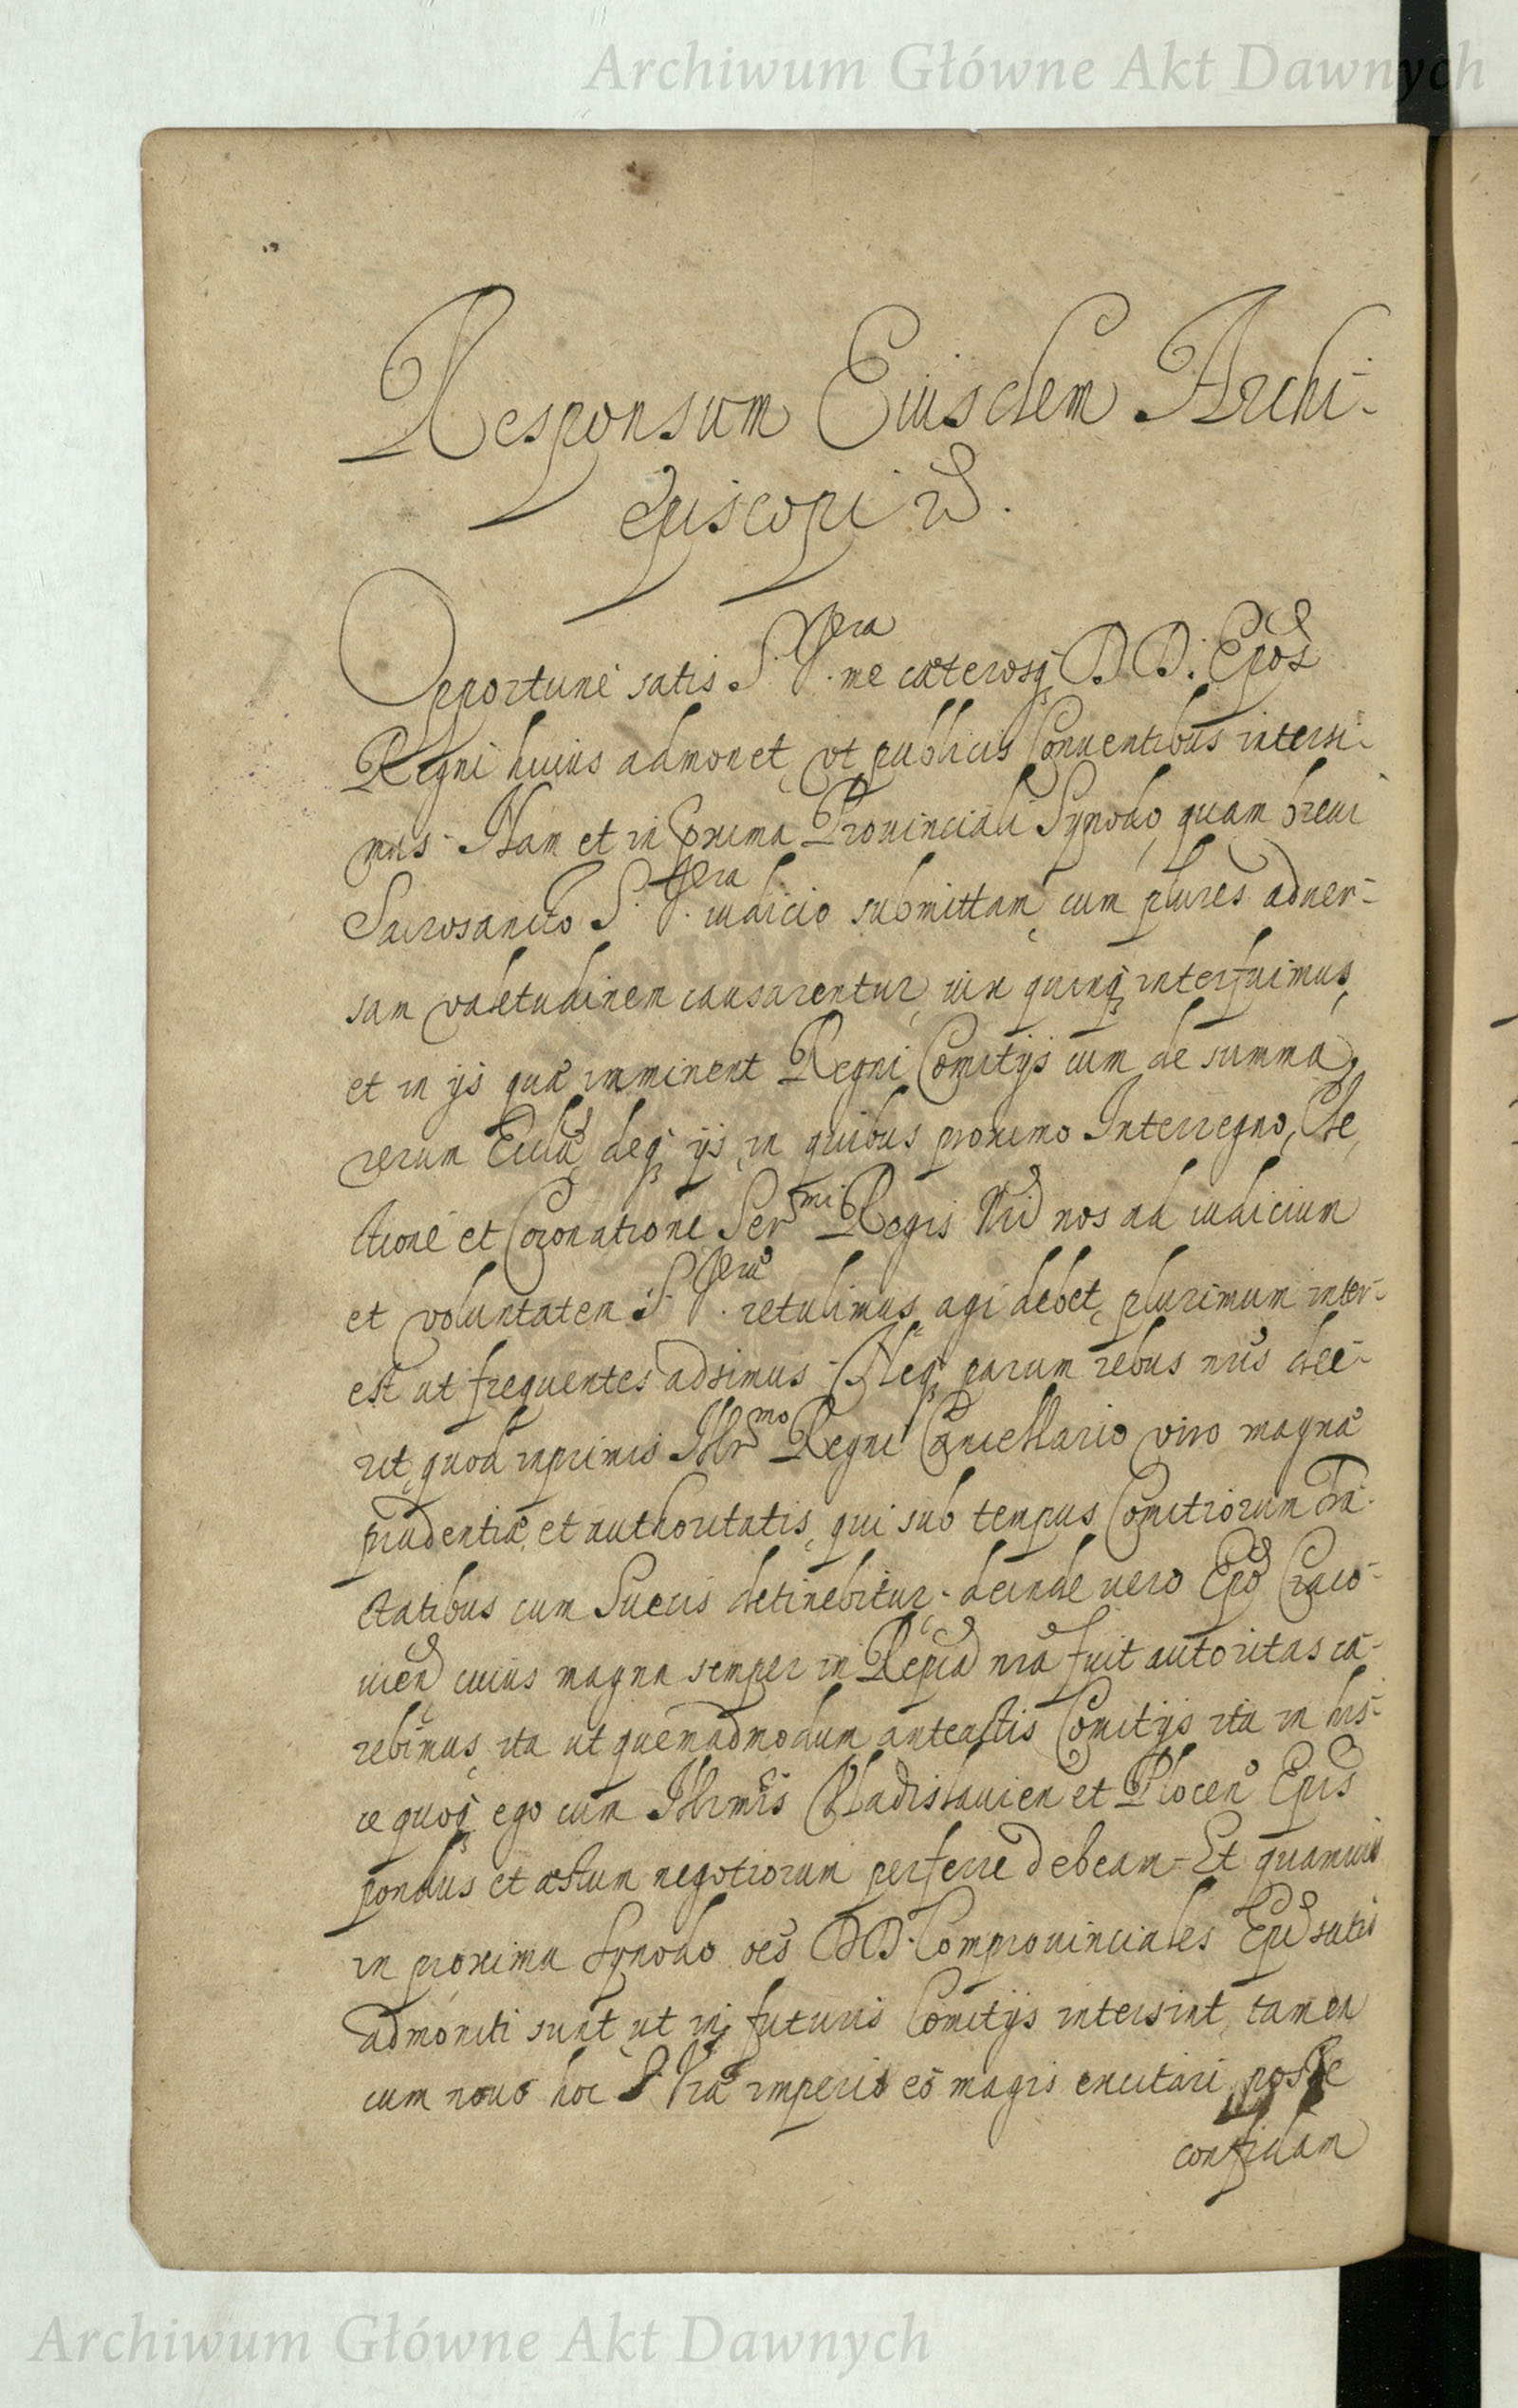 Archiwum Główne Akt Dawnych
Responsum Eiusdem Archi-
episcopi
Opportune satis S. Vra me cæterosq DD. Epos
Regni huius admonet, vt publicis Conuentibus intersi-
mus. Nam et in proxima Prouinciali Synodo, quam breui
Sacrosancto S. Vra iudicio submittam, cum plures aduer-
sam valetudinem causarentur, uix quinq interfuimus,
et in ijs quæ imminent Regni Comitijs cum de summa
rerum Ecclæ, deq ijs, in quibus proximo Interregno, Ele
ctione et Coronatione Sermi Regis Nri nos ad iudicium
et voluntatem S. Vræ retulimus, agi debet, plurimum inter-
est ut frequentes adsimus. Neq parum rebus nris dee-
rit, quod inprimis Illrmo Regni Cancellario viro magnæ
prudentiæ, et authoritatis, qui sub tempus Comitiorum tra-
ctatibus cum Suecis detinebitur. deinde uero Epo Craco-
uien cuius magna semper in Repca nra fuit autoritas ca-
rebimus, ita ut quemadmodum anteactis Comitijs ita in his-
ce quoq ego cum Illrmis Vladislauien et Plocen Epis
pondus et æstum negotiorum perferre debeam. Et quamuis
in proxima Synodo oes DD. Comprouinciales Epi satis
admoniti sunt, ut in futuris Comitijs intersint, tamen
cum nouo hoc S. Vræ imperio eos magis excitari posse
confidam
Archiwum Główne Akt Dawnych